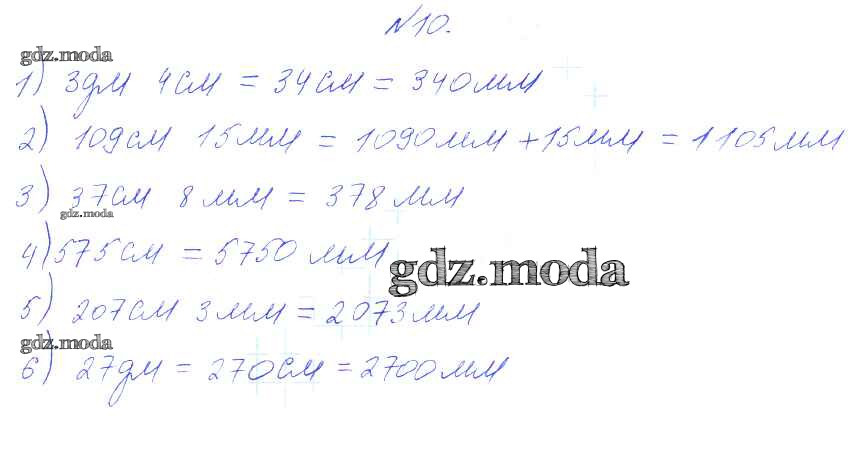 №10.
gdz.moda
1) 3дм 4см = 34см = 340мм
2) 109см 15мм = 1090мм + 15мм = 1105мм
3) 37см 8мм = 378мм
gdz.moda
4) 575см = 5750мм
gdz.moda
5) 207см 3мм = 2073мм
gdz.moda
6) 27дм = 270см = 2700мм